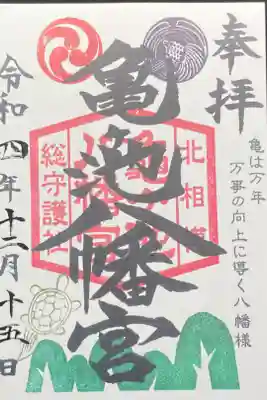 奉拝
亀は万年
万事の向上に導く八幡様
亀ヶ池八幡宮
北相模
総守護社
令和四年十二月十五日